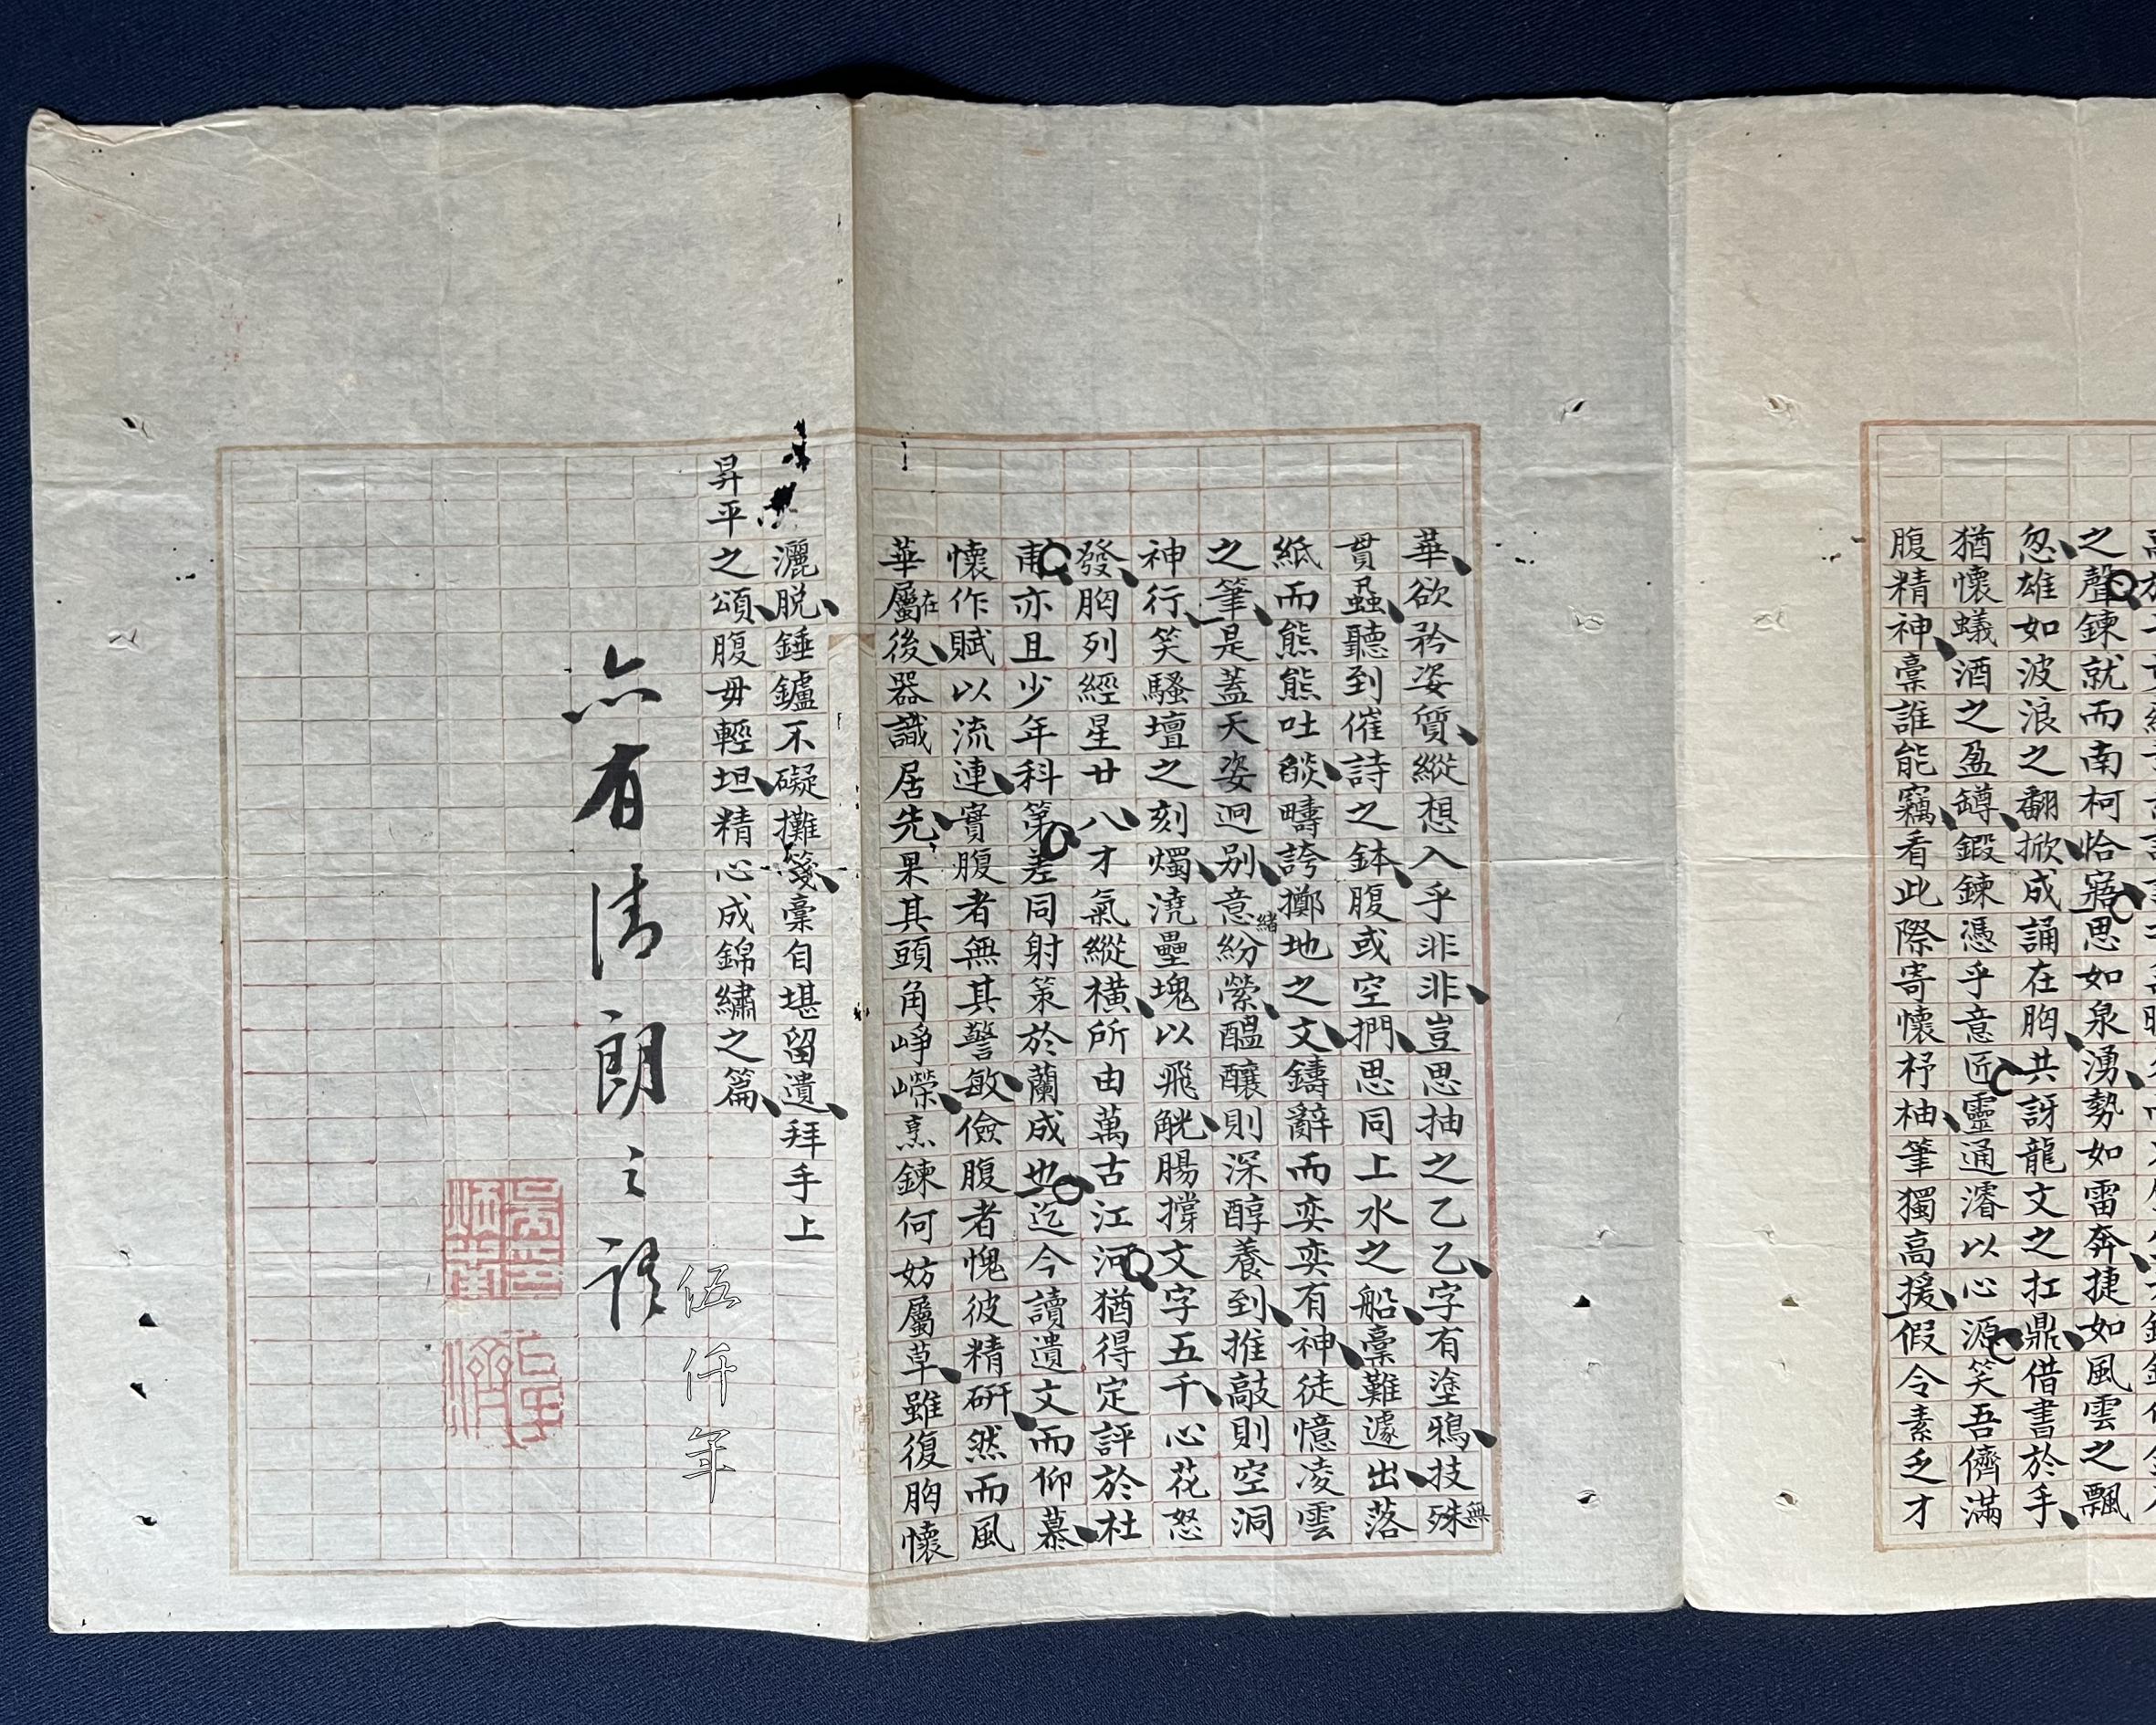 之聲鍊就而南柯恰寤思如泉湧勢如雷奔捷如風雲之飄
忽雄如波浪之翻掀成誦在胸共訝龍文之扛鼎借書於手
猶懷蟻酒之盈罇鍛鍊憑乎意匠靈通濬以心源笑吾儕滿
腹精神稾誰能竊看此際寄懷杼柚筆獨高援假令素乏才
華欲矜姿質縱想入乎非非豈思抽之乙乙字有塗鴉技殊無
貫蝨聽到催詩之鉢腹或空捫思同上水之船稾難遽出落
紙而熊熊吐燄疇誇擲地之文鑄辭而奕奕有神徒憶凌雲
之筆是蓋天姿迥别意緒紛縈醞釀則深醇養到推敲則空洞
神行笑騷壇之刻燭澆壘塊以飛觥腸撐文字五千心花怒
發胸列經星廿八才氣縱橫所由萬古江河猶得定評於杜
甫亦且少年科第差同射策於蘭成也迄今讀遺文而仰慕
懷作賦以流連實腹者無其警敏儉腹者愧彼精研然而風
華屬在後器識居先果其頭角崢嶸烹鍊何妨屬草雖復胸懷
灑脱錘鑪不礙攤箋稾自堪留遺拜手上
昇平之頌腹毋輕坦精心成錦繡之篇
亦有清朗之語
伍仟年